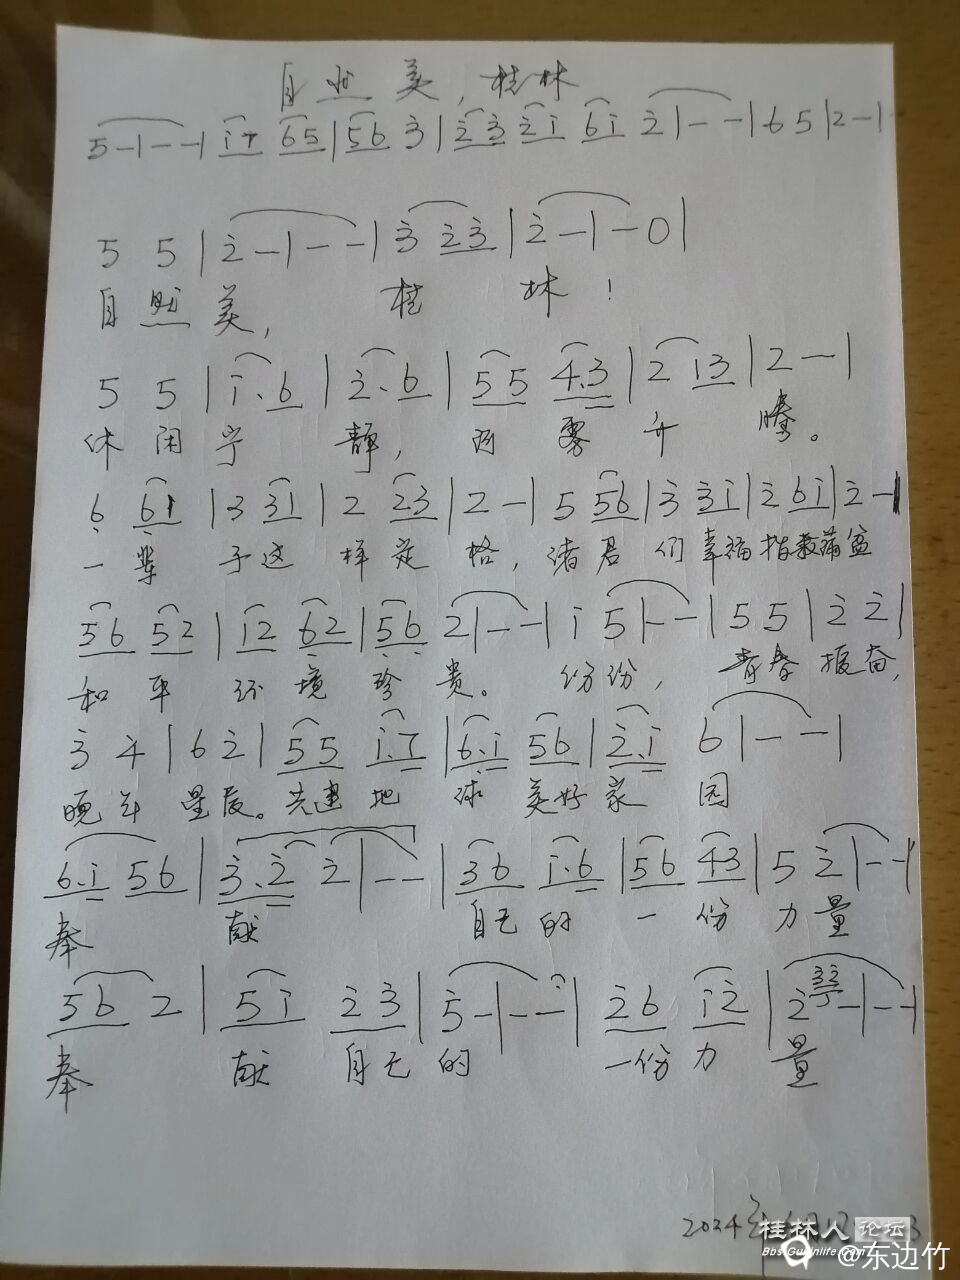 自然美,桂林
5-|--|i7 65|56 3|23 2i 6i 2|--|65|2-|
5 5|2-|--|3 23|2-|-0|
自然美, 桂林!
5 5|i.6|2.6|55 4.3|2 i3|2-|
休闲宁静, 雨雾升腾。
6 61|3 31|2 23|2-|5 56|3 3i|2 6i|2-|
一辈于这样定格,诸君们幸福指数满盆
56 52|i2 62|56 2|--|i 5|--|5 5|2 2|
和平环境珍贵。份份,青春报奋,
3 4|6 2|55 i.7|6.i 56|2.i 6|--|
晚年星辰。共建地球美好家园
6.i 56|3.2 2|--|36 i.6|56 43|5 2|--|
奉献自己的一份力量
56 2|5i 23|5-|--|26 i2|2-|--|
奉献自己的一份力量
2024年
桂林人论坛
@东边竹